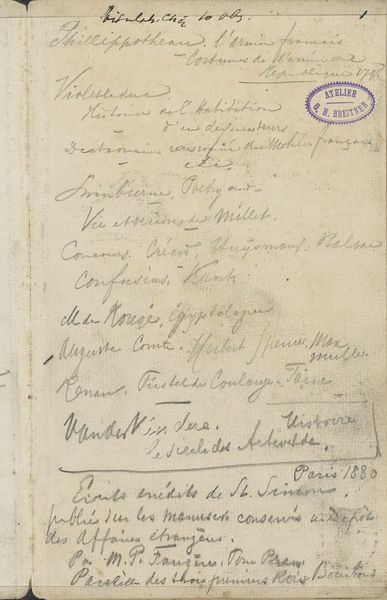 1
Phillippotheau, l'armée français
Costumes de l'armée de
République 179
Violetleduc
Histoire de l'Habitation
ATELIER
G. H. BREITNER
Dictionnaire raisonné du Mobilier français
Swinburne, Poetry and
Vie et oeuvres de Millet.
Huysmans, Balzac
Confucius, Kant
M de Rougé, Egyptologue
Auguste Comte. Herbert Spencer, Max
Muller
Renan. Fustel de Coulange. Taine
Vander Kindere. Histoire
le siècle des Artevelde.
Paris 1880
Ecrits inédits de St. Simon
publiés sur les manuscrits conservés au depot
des Affaires etrangères.
Par M. P. Faugère. Tome Prem
Parallèle des trois premiers Rois Bourbons